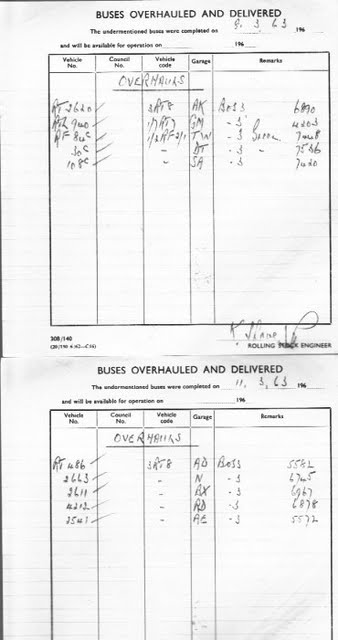 BUSES OVERHAULED AND DELIVERED
The undermentioned buses were completed on 9. 3. 63 196
and will be available for operation on 196
Vehicle No. Council No. Vehicle code Garage Remarks
OVERHAULS
RT 2620 3RT8 AK BOSS 6890
940 GM - S 4203
RF 84c TW - S
30c - - S "
108c - SA - S 7420
K
308/140
ROLLING STOCK ENGINEER
BUSES OVERHAULED AND DELIVERED
The undermentioned buses were completed on 11. 3. 63 196
and will be available for operation on 196
Vehicle No. Council No. Vehicle code Garage Remarks
OVERHAULS
RT 486 3RT8 AD BOSS
2663 - N - S 6745
2611 - BX - S 6967
4212 - AD - S 6878
2541 - AE - S 5572